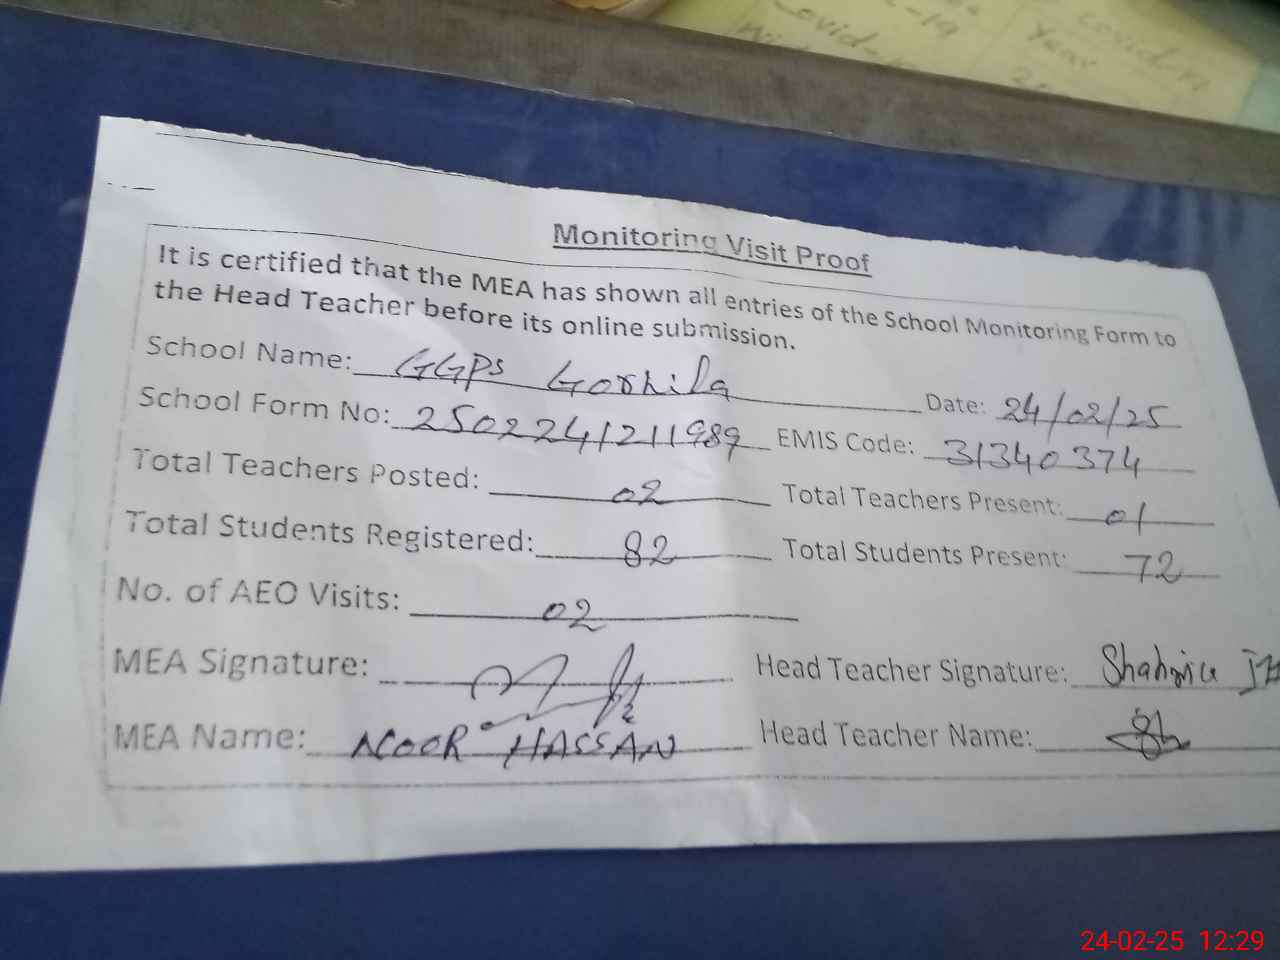 covid-19
Year
Covid
-19
Monitoring Visit Proof
It is certified that the MEA has shown all entries of the School Monitoring Form to
the Head Teacher before its online submission.
School Name: GGPS Gorhila Date: 24/02/25
School Form No: 2502241211989 EMIS Code: 31340374
Total Teachers Posted: 02 Total Teachers Present: 01
Total Students Registered: 82 Total Students Present: 72
No. of AEO Visits: 02
MEA Signature: Head Teacher Signature:
MEA Name: NOOR HASSAN Head Teacher Name:
24-02-25 12:29